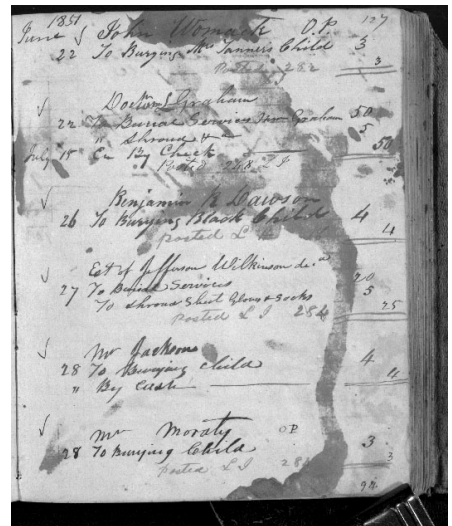 1851 127
June John Womack O.P.
22 To Burying Mrs Tanners Child 3
Posted 282 3
Doctor Graham
22 To Burial Services Graham 50
" Shroud & 5
July 15 Cr By Check 50
Posted 268 L I
Benjamin R Dawson
26 To Burying Black Child 4
posted L 4
Est of Jefferson Wilkinson de.d
27 To Burial Services 20
To Shroud Sheet Gloves & Socks 5
posted L I 284 25
Mr Jackson
28 To Burying Child 4
" By Cash 4
Mr Moraty OP
28 To Burying Child 3
posted L I 3
92